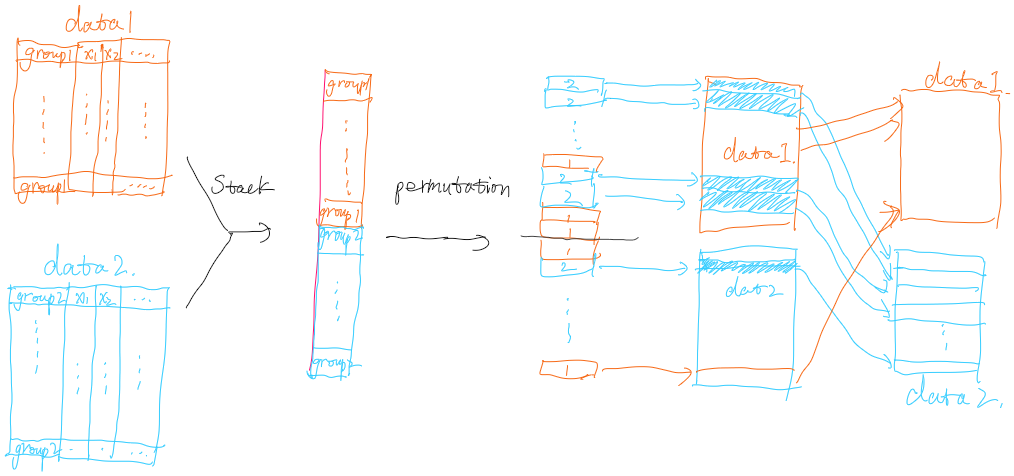 data1
group1 x1 x2 ....
group1 .....
data2.
group2 x1 x2 ...
group2 . . .
Stack
group1
group1
group2
group2
permutation
2
2
1
2
2
1
1
1
2
1
data1.
dat2
data1.
data2.